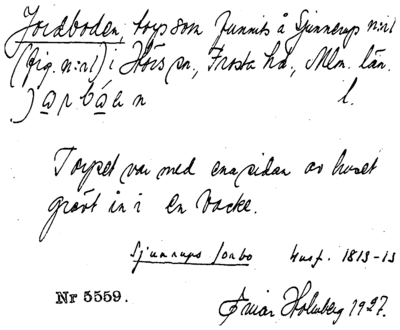 Jordboden, torp som funnits å Sjunnerup n:r1
(fig. n:r1) i Hörs sn., Frosta hd., Mlm. län.
) a r b á a n l.
Torpet var med ena sidan av huset
grävt in i en backe.
Sjunnups Jonbo Husf. 1813-13
Nr 5559. Einar Holmberg 1927.